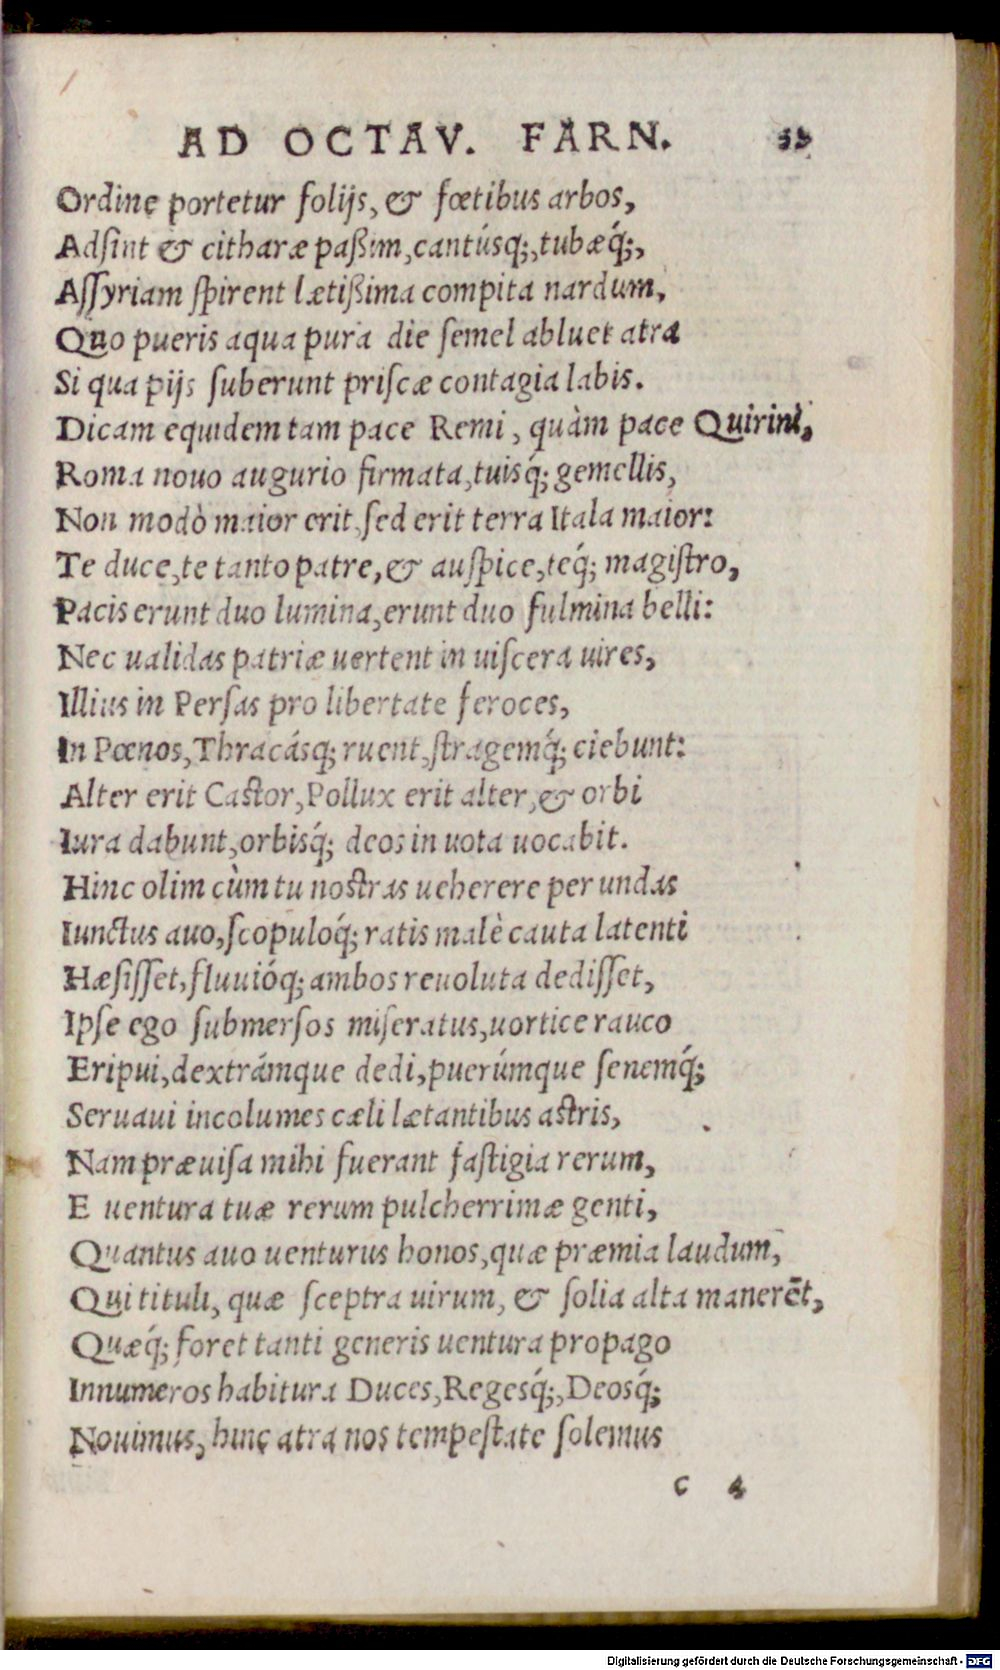 AD OCTAV. FARN.
Ordine portetur folijs, & fœtibus arbos,
Adſint & citharæ paßim, cantúsq́;, tubæq́;,
Aſſyriam ſpirent lætißima compita nardum,
Quo pueris aqua pura die ſemel abluet atra
Si qua pijs ſuberunt priſcæ contagia labis.
Dicam equidem tam pace Remi, quàm pace Quirini,
Roma nouo augurio firmata, tuisq́; gemellis,
Non modò maior erit, ſed erit terra Itala maior:
Te duce, te tanto patre, & auſpice, teq́; magiſtro,
Pacis erunt duo lumina, erunt duo fulmina belli:
Nec ualidas patriæ uertent in uiſcera uires,
Illius in Perſas pro libertate feroces,
In Pœnos, Thracásq; ruent, ſtragemq́; ciebunt:
Alter erit Caſtor, Pollux erit alter, & orbi
Iura dabunt, orbisq́; deos in uota uocabit.
Hinc olim cùm tu noſtras ueherere per undas
Iunctus auo, ſcopuloq́; ratis malè cauta latenti
Hæſiſſet, fluuióq; ambos reuoluta dediſſet,
Ipſe ego ſubmerſos miſeratus, uortice rauco
Eripui, dextrámque dedi, puerúmque ſenemq́;
Seruaui incolumes cæli lætantibus aſtris,
Nam præuiſa mihi fuerant faſtigia rerum,
E uentura tuæ rerum pulcherrimæ genti,
Quantus auo uenturus honos, quæ præmia laudum,
Qui tituli, quæ ſceptra uirum, & ſolia alta manerēt,
Quæq́; foret tanti generis uentura propago
Innumeros habitura Duces, Regesq́;, Deosq́;
Nouimus, hinc atra nos tempeſtate ſolemus
C 4
Digitalisierung gefördert durch die Deutsche Forschungsgemeinschaft - DFG